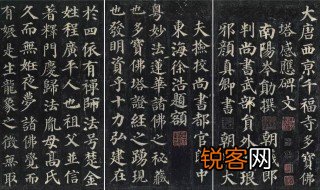 大唐西京千福寺多寶佛
塔感應碑文
南陽岑勛撰朝議郎
判尚書武部員外郎琅
邪顏真卿書朝散大
夫撿挍尚書都官郎中
東海徐浩題額
粵妙法蓮華諸佛之秘藏
也多寶佛塔證經之踴現
也發明資乎十力弘建在
於四依有禪師法号楚金
姓程廣平人也祖父並信
著釋門慶歸法胤母高氏
久而無姙夜夢諸佛覺而
有娠是生龍象之徵無取
锐客网